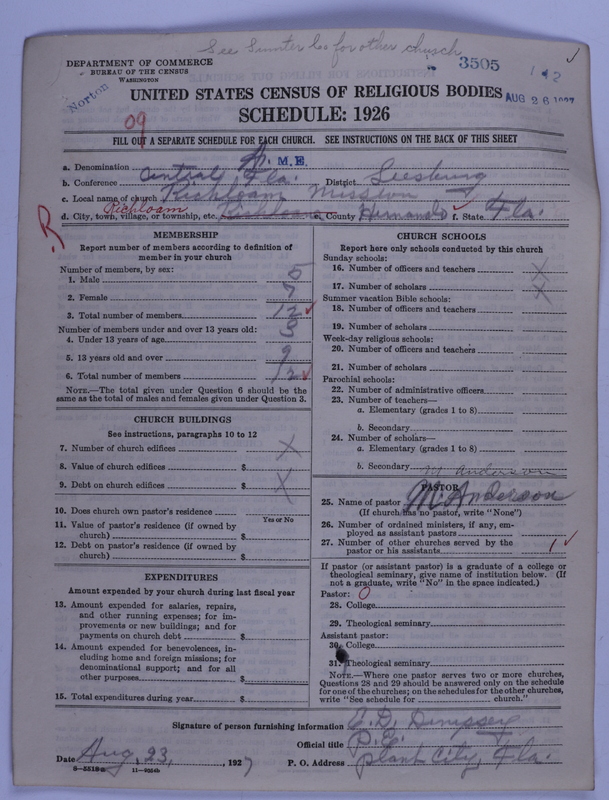 See Sumter Co for other church
DEPARTMENT OF COMMERCE
BUREAU OF THE CENSUS
WASHINGTON
3505
Norton
UNITED STATES CENSUS OF RELIGIOUS BODIES
AUG 26 1927
SCHEDULE: 1926
09
FILL OUT A SEPARATE SCHEDULE FOR EACH CHURCH. SEE INSTRUCTIONS ON THE BACK OF THIS SHEET
a. Denomination A. M.E.
b. Conference Central Fla. District Leesburg
c. Local name of church Richloam Mission
d. City, town, village, or township, etc. Richloam e. County Hernando f. State Fla.
R
MEMBERSHIP
Report number of members according to definition of
member in your church
Number of members, by sex:
1. Male 5
2. Female 7
3. Total number of members 12
Number of members under and over 13 years old:
4. Under 13 years of age 3
5. 13 years old and over 9
6. Total number of members 12
NOTE.—The total given under Question 6 should be the
same as the total of males and females given under Question 3.
CHURCH BUILDINGS
See instructions, paragraphs 10 to 12
7. Number of church edifices X
8. Value of church edifices $
9. Debt on church edifices $ X
10. Does church own pastor's residence
Yes or No
11. Value of pastor's residence (if owned by
church) $
12. Debt on pastor's residence (if owned by
church) $
EXPENDITURES
Amount expended by your church during last fiscal year
13. Amount expended for salaries, repairs,
and other running expenses; for im-
provements or new buildings; and for
payments on church debt $
14. Amount expended for benevolences, in-
cluding home and foreign missions; for
denominational support; and for all
other purposes $
15. Total expenditures during year $
CHURCH SCHOOLS
Report here only schools conducted by this church
Sunday schools:
16. Number of officers and teachers X
17. Number of scholars X
Summer vacation Bible schools:
18. Number of officers and teachers
19. Number of scholars
Week-day religious schools:
20. Number of officers and teachers
21. Number of scholars
Parochial schools:
22. Number of administrative officers
23. Number of teachers—
a. Elementary (grades 1 to 8)
b. Secondary
24. Number of scholars—
a. Elementary (grades 1 to 8)
b. Secondary M Anderson
PASTOR
25. Name of pastor M. Anderson
(If church has no pastor, write "None")
26. Number of ordained ministers, if any, em-
ployed as assistant pastors
27. Number of other churches served by the
pastor or his assistants 1
If pastor (or assistant pastor) is a graduate of a college or
theological seminary, give name of institution below. (If
not a graduate, write "No" in the space indicated.)
Pastor: 0
28. College
29. Theological seminary
Assistant pastor:
30. College
31. Theological seminary
NOTE.—Where one pastor serves two or more churches,
Questions 28 and 29 should be answered only on the schedule
for one of the churches; on the schedules for the other churches,
write "See schedule for church."
Signature of person furnishing information D. Dempsey
Official title P.E.
Date Aug, 23, 1927 P. O. Address Plant City, Fla.
8-5518a 11-9024b